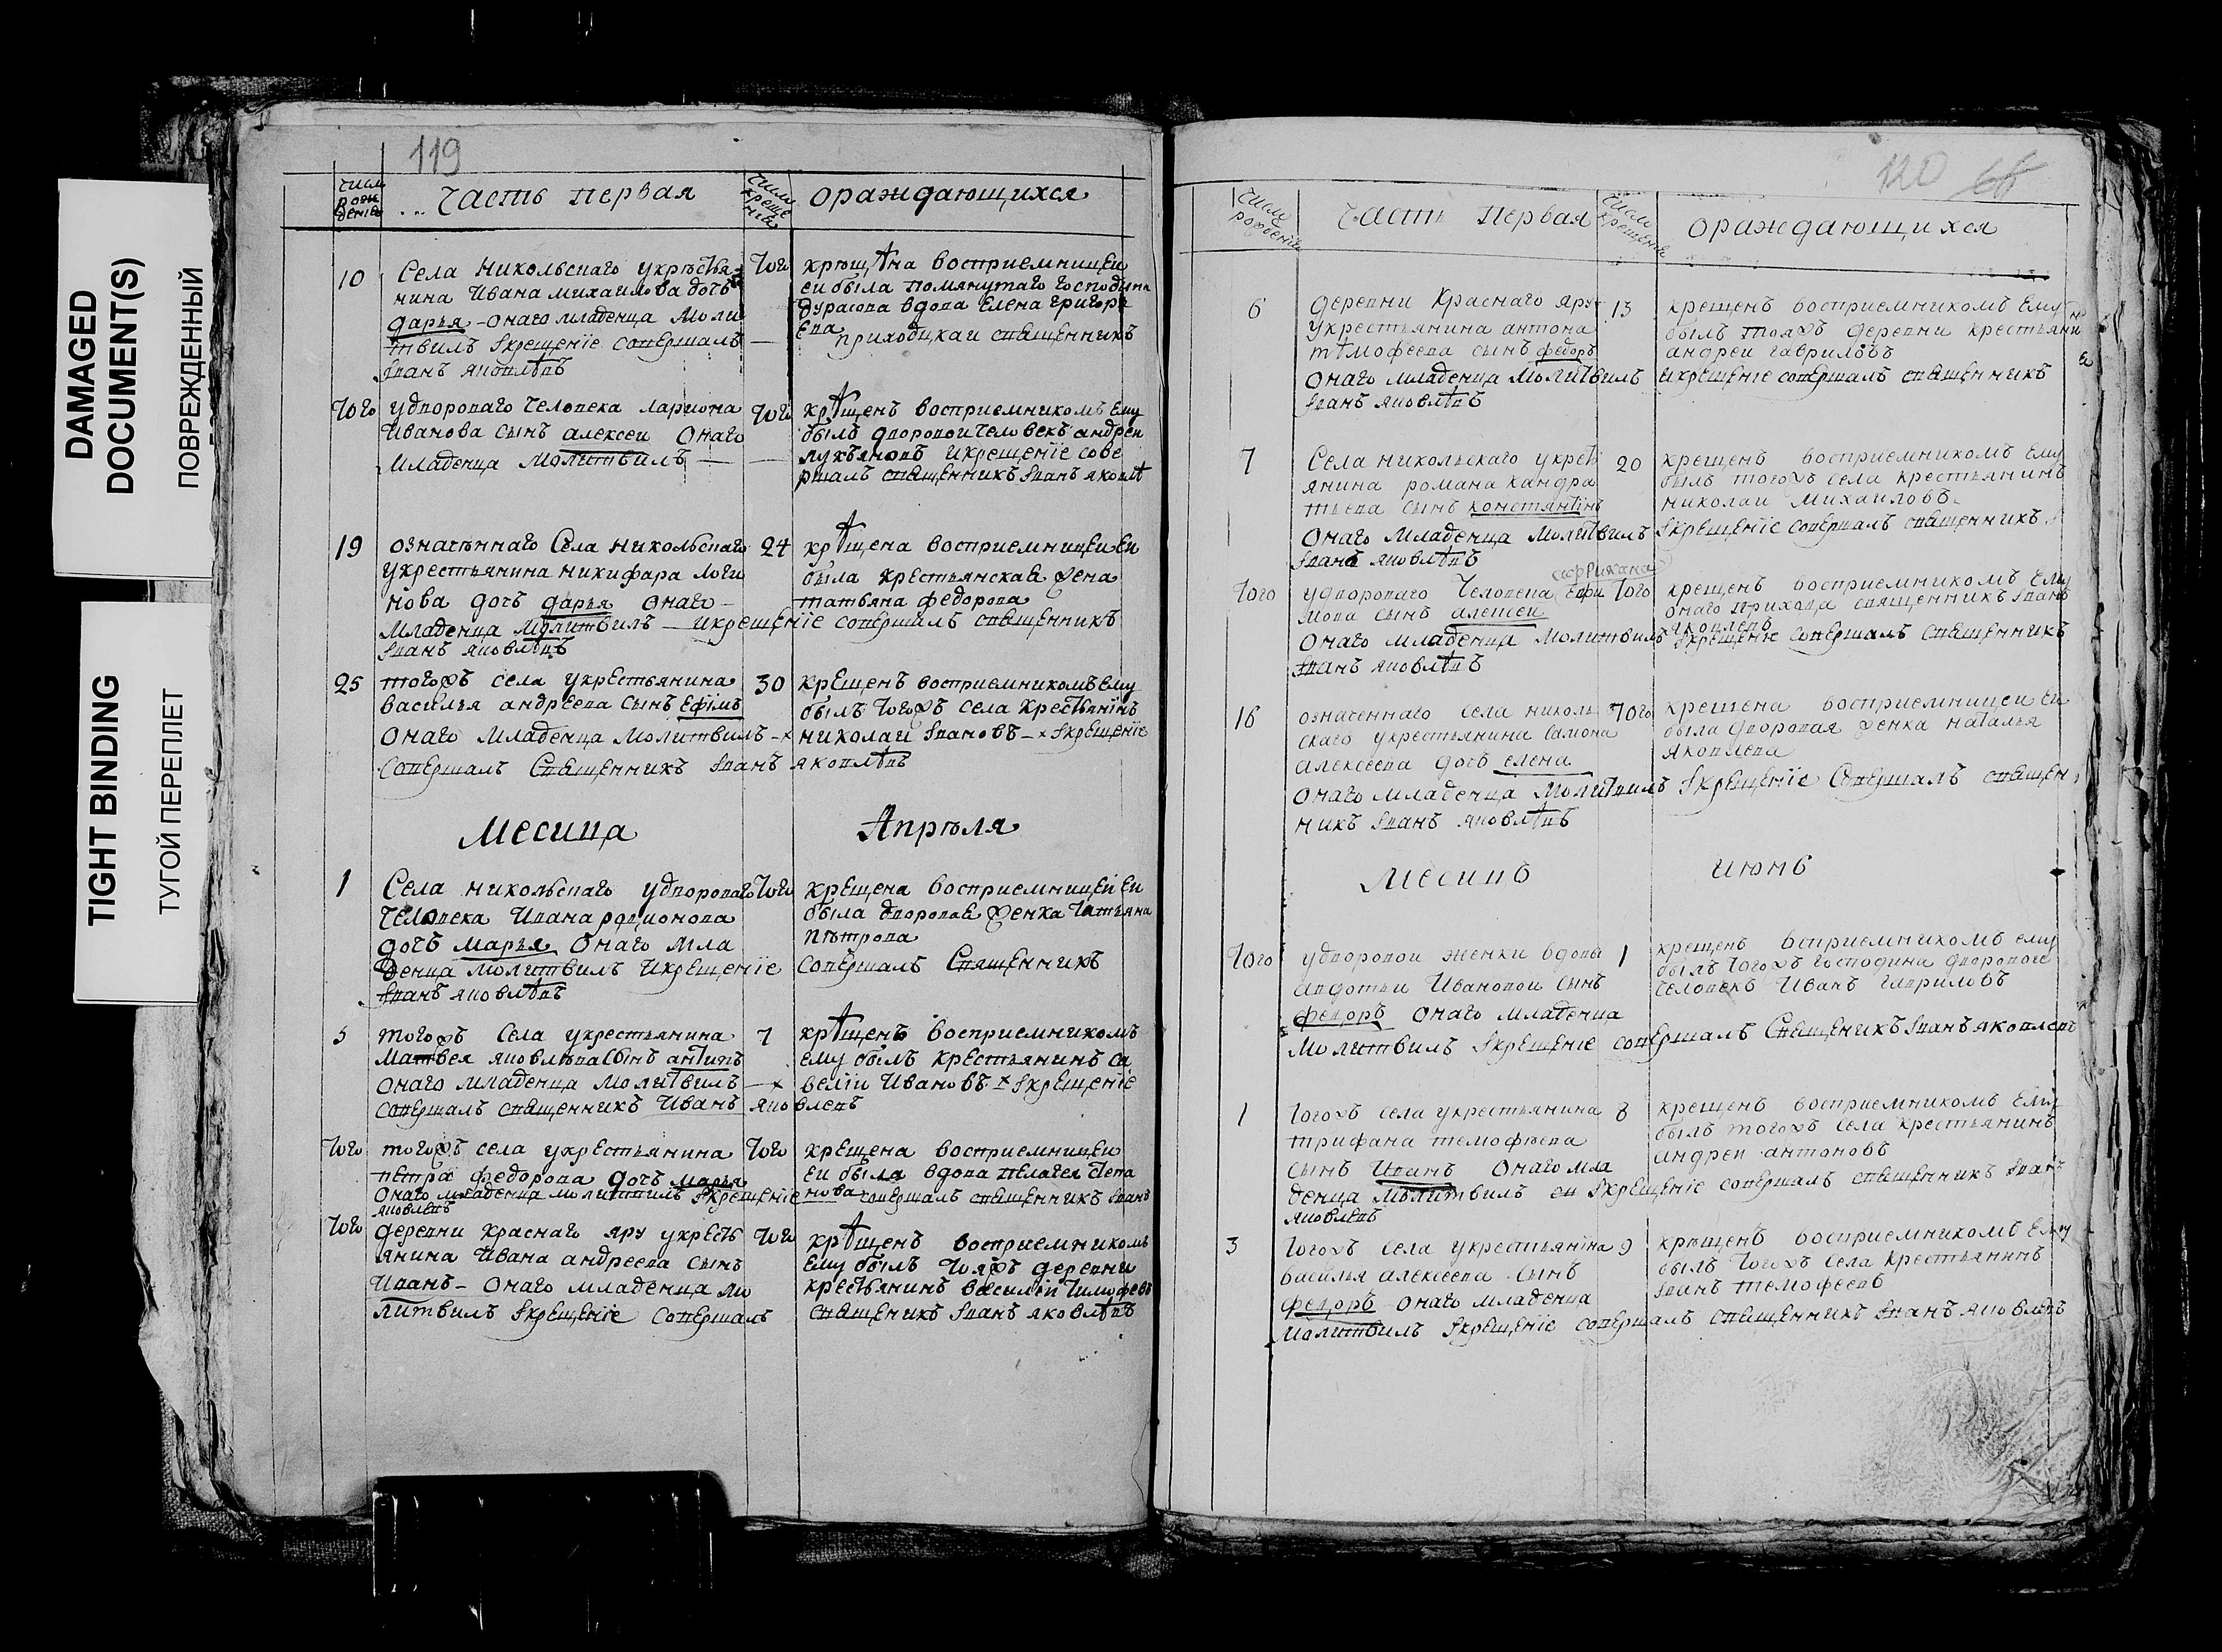 DAMAGED
DOCUMENT(S)
ПОВРЕЖДЕННЫЙ
TIGHT BINDING
ТУГОЙ ПЕРЕПЛЕТ
119
числ рож дениє
Часть первая
числ креще ния
ораждающихся
10
Села никольскаго укрѣстья
нина Ивана михаилова дочь
дарья онаго младенца моли
твилъ Iкрещенiе совершалъ
Iванъ яковлѣвъ
того
крѣщена восприемницеи
еи была помянутаго господина
дурасова вдова Елена григорь
Ева приходцкаи священникъ
того
удворового человека лариона
Иванова сынъ алексеи Онаго
младенца молитвилъ
того
крѣщенъ восприемникомъ Ему
былъ дворовои человекъ андреи
лукъяновъ Икрещенiе сове
ршалъ священникъ Iванъ яковлѣ
19
означѣннаго Села никольскаго
укрестьянина никифара логи
нова дочъ дарья Онаго
младенца молитвилъ Икрещенiе совершалъ священникъ
Iванъ яковлѣвъ
24
крѣщена восприемницеи Еи
была крестьянская жена
татьяна федорова
25
тогожъ села укрестьянина
василья андреева сынъ Ефiмъ
Онаго младенца молитвилъ
совершалъ священникъ Iванъ яковлѣвъ
30
крещенъ восприемникомъ Ему
былъ тогожъ села крестьянiнъ
николаи Iвановъ Iкрещенiе
Месица Апрѣля
1
Села никольскаго удворового
человека Ивана родионова
дочъ марья Онаго мла
денца молитвилъ Икрещенiе совершалъ священникъ
Iванъ яковлѣвъ
того
крещена восприемницеи Еи
была дворовая женка татьяна
пѣтрова
5
тогожъ села укрестьянина
матвея яковлѣва сынъ антипъ
онаго младенца молитвилъ
совершалъ священникъ Иванъ яковлевъ
7
крѣщенъ восприемникомъ
ему былъ крестьянинъ са
велiи Ивановъ Iкрещенiе
того
тогожъ села укрестьянина
петра федорова дочъ марья
Онаго младенца молитвилъ Iкрещенiе совершалъ священникъ Iванъ
яковлевъ
того
крещена восприемницеи
еи была вдова пелагея степа
нова
того
деревни краснаго яру укресть
янина Ивана андреева сынъ
Иванъ Онаго младенца мо
литвилъ Iкрещенiе совершалъ
того
крѣщенъ восприемникомъ
ему былъ тояжъ деревни
крестьянинъ василiи тимофеевъ
священикъ Iванъ яковлѣвъ
120
числ рождениi
часть первая
числ крещения
ораждающихся
6
деревни краснаго яру
укрестьянина антона
тимофеева сынъ федоръ
Онаго младенца молитвилъ Икрещенiе совершалъ священникъ
Iванъ яковлѣвъ
13
крещенъ восприемникомъ ему
былъ тояжъ деревни крестьяни
андреи гавриловъ
7
Села никольскаго укресть
янина романа кандра
тьева сынъ константiнъ
Онаго младенца молитвилъ Iкрещенiе совершалъ священникъ
Iванъ яковлѣвъ
20
крещенъ восприемникомъ ему
былъ тогожъ села крестьянинъ
николаи михаиловъ
того
удворового человека Ефи
мова сынъ алексеи
Онаго младенца молитвилъ Iкрещенiе совершалъ священникъ
Iванъ яковлѣвъ
того
крещенъ восприемникомъ ему
онаго прихода священникъ Iванъ
яковлевъ
16
означеннаго села николь
скаго укрестьянина самона
алексеева дочъ елена
Онаго младенца молитвилъ Iкрещенiе совершалъ священ
никъ Iванъ яковлѣвъ
того
крещена восприемницеи еи
была дворовая женка наталья
яковлева
Месицъ июнь
того
удворовои женки вдовы
авдотьи Ивановои сынъ
федоръ онаго младенца
молитвилъ Iкрещенiе совершалъ священикъ Iванъ яковлевъ
1
крещенъ восприемникомъ ему
былъ тогожъ господина дворовои
человекъ Иванъ гавриловъ
1
тогожъ села укрестьянина
трифана темофѣева
сынъ Иванъ онаго мла
денца молитвилъ Iкрещенiе совершалъ священникъ Iванъ
яковлевъ
8
крещенъ восприемникомъ ему
былъ тогожъ села крестьянинъ
андреи антоновъ
3
тогожъ села укрестьянiна
василья алексеева сынъ
федоръ онаго младенца
молитвилъ Iкрещенiе совершалъ священникъ Iванъ яковлевъ
9
крѣщенъ восприемникомъ ему
былъ тогожъ села крестьянинъ
Iванъ темофеевъ